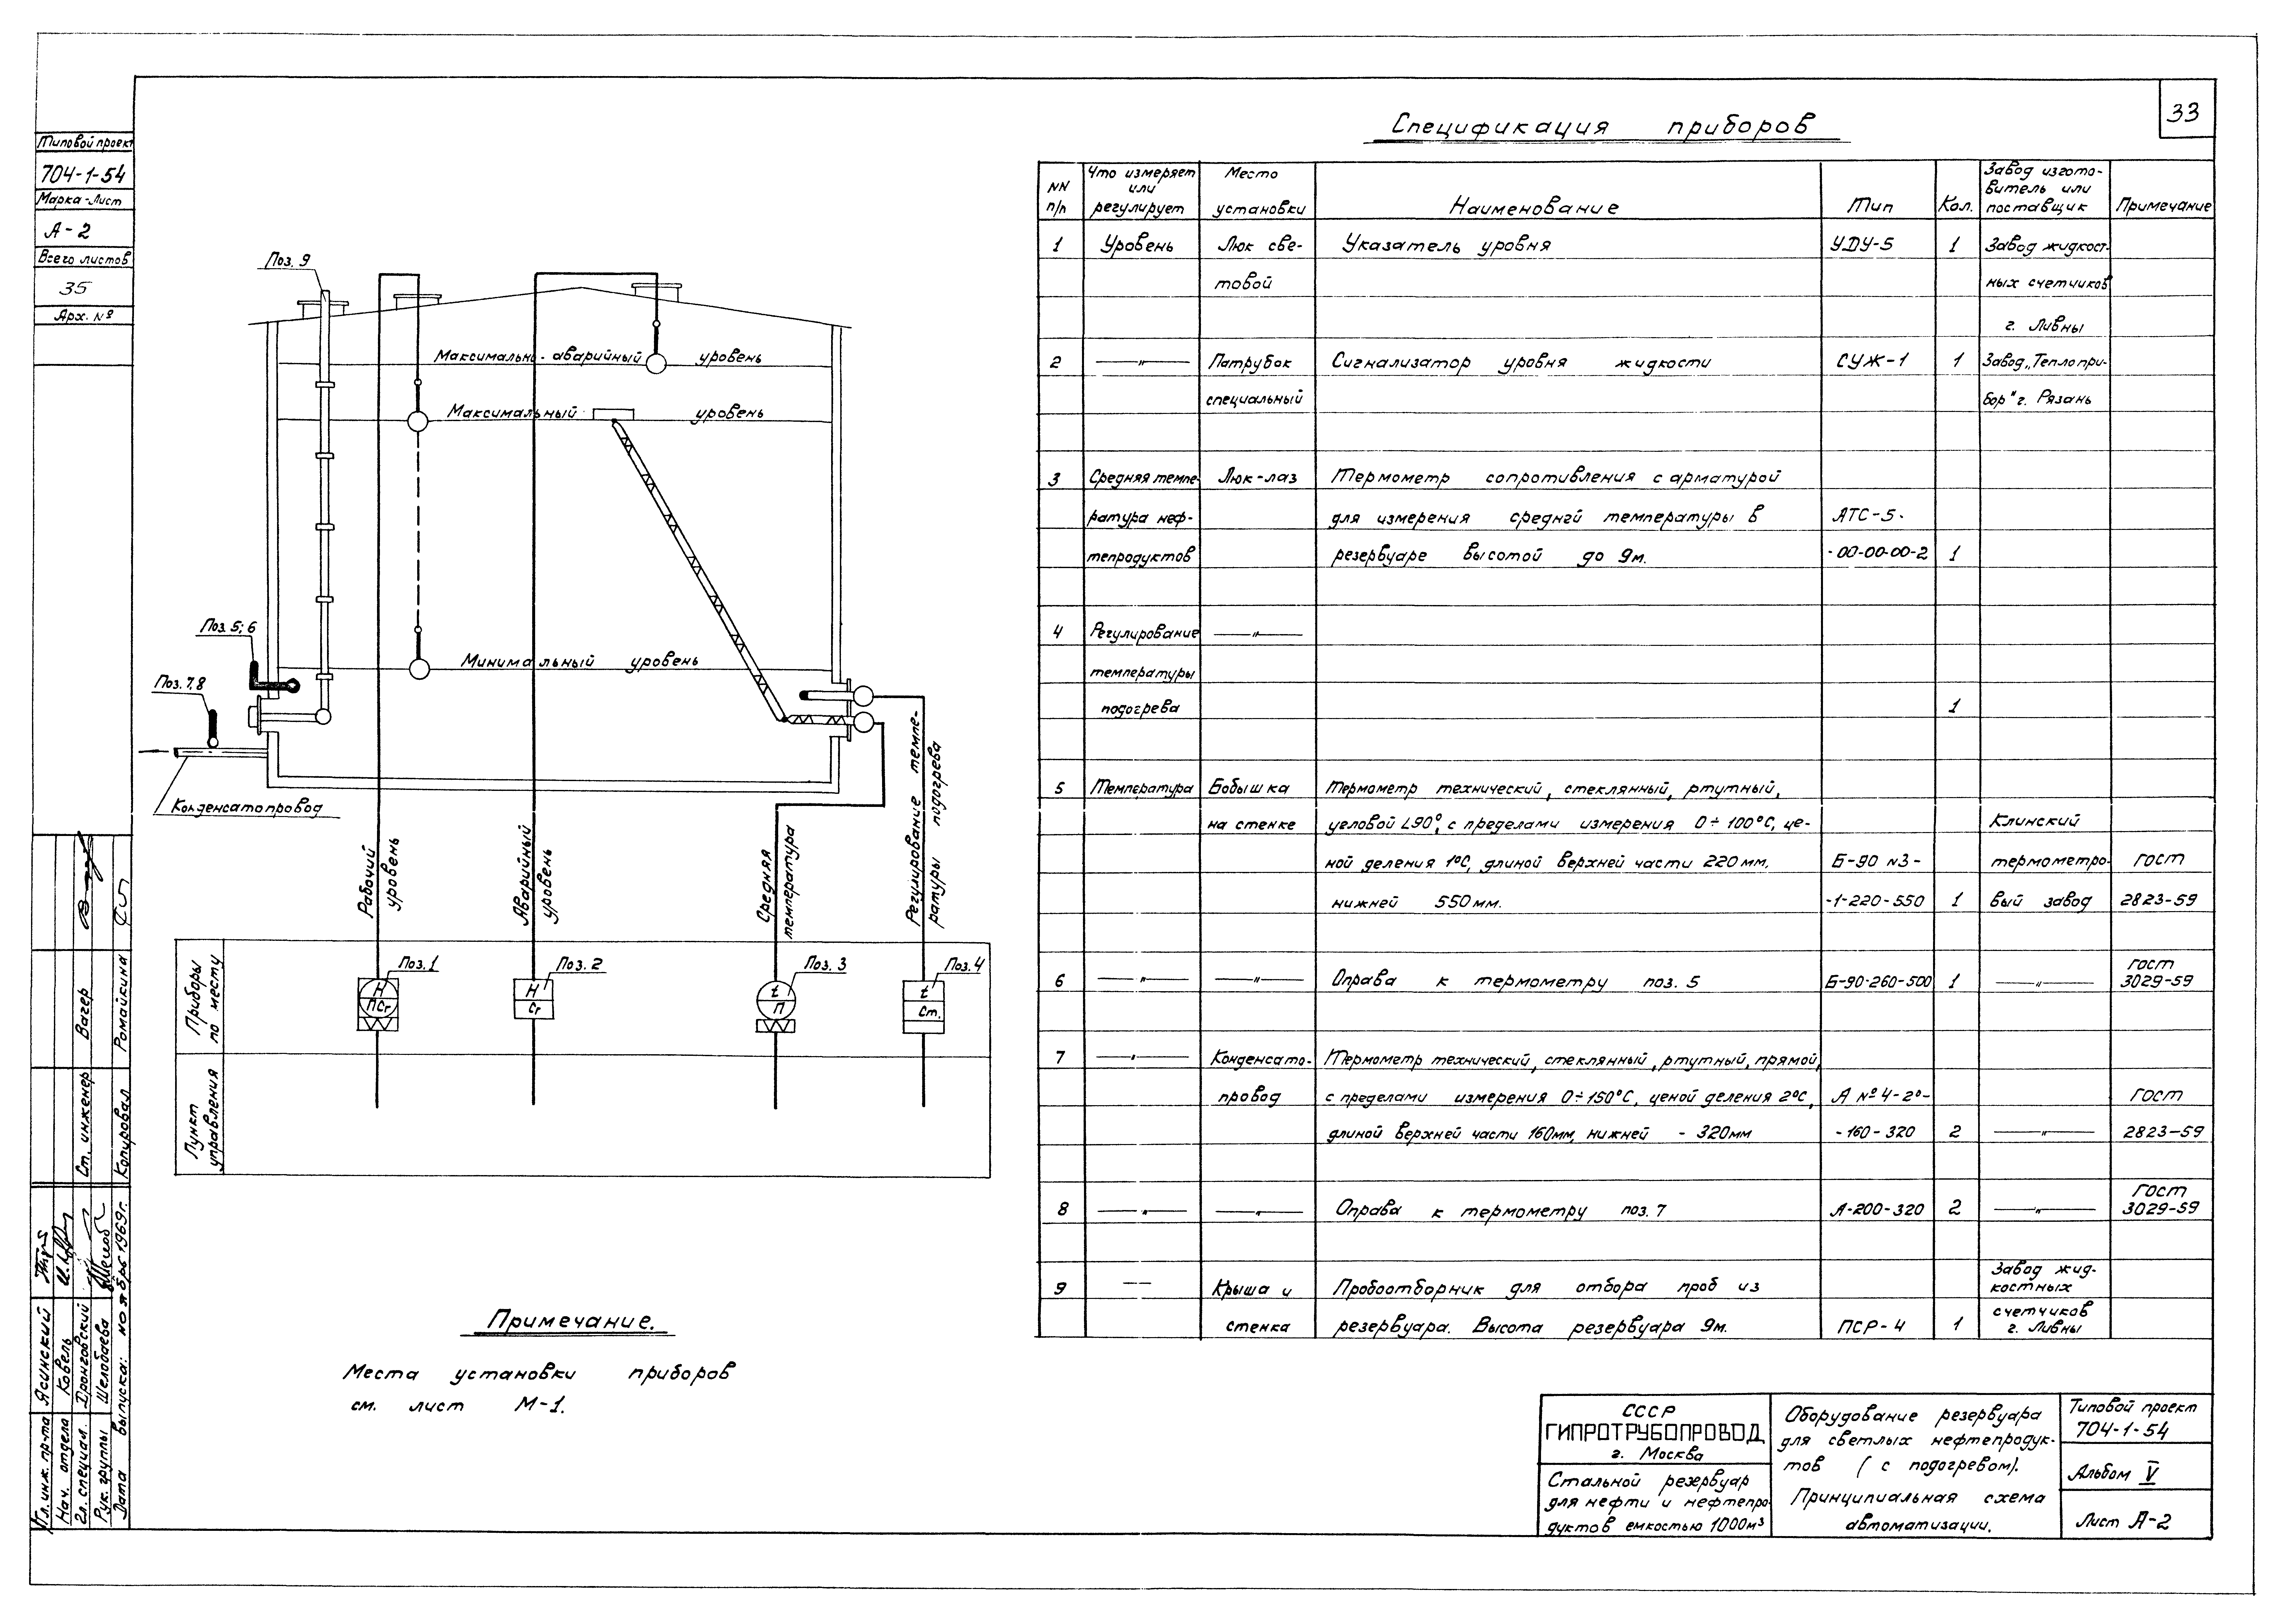 33
Типовой проект
704-1-54
Марка-Лист
А-2
Всего листов
35
Арх. №
Поз. 9
Максимально-аварийный уровень
Максимальный уровень
Поз. 5; 6
Минимальный уровень
Поз. 7,8
Конденсатопровод
Рабочий уровень
Аварийный уровень
Средняя температура
Регулирование температуры подогрева
Приборы по месту
Пункт управления
Поз. 1
Н
ПСг
Поз. 2
Н
Сг
Поз. 3
t
П
Поз. 4
t
Ст.
Примечание.
Места установки приборов
см. лист М-1.
Спецификация приборов
NN п/п
Что измеряет или регулирует
Место установки
Наименование
Тип
Кол.
Завод изготовитель или поставщик
Примечание
1 Уровень Люк све- Указатель уровня УДУ-5 1 Завод жидкост-
товой ных счетчиков
г. Ливны
2 —"— Патрубок Сигнализатор уровня жидкости СУЖ-1 1 Завод „Теплопри-
специальный бор" г. Рязань
3 Средняя темпе- Люк-лаз Термометр сопротивления с арматурой
ратура неф- для измерения средней температуры в АТС-5-
тепродуктов резервуаре высотой до 9м. -00-00-00-2 1
4 Регулирование —"—
температуры
подогрева 1
5 Температура Бобышка Термометр технический, стеклянный, ртутный,
на стенке угловой L90°, с пределами измерения 0÷100°С, це- Клинский
ной деления 1°С, длиной верхней части 220 мм, Б-90 N3- термометро- ГОСТ
нижней 550 мм. -1-220-550 1 вый завод 2823-59
6 —"— —"— Оправа к термометру поз. 5 Б-90-260-500 1 —"— ГОСТ 3029-59
7 —"— Конденсато- Термометр технический, стеклянный, ртутный, прямой,
провод с пределами измерения 0÷150°С, ценой деления 2°С, А №4-2°- ГОСТ
длиной верхней части 160мм, нижней - 320мм -160-320 2 —"— 2823-59
8 —"— —"— Оправа к термометру поз. 7 А-200-320 2 —"— ГОСТ 3029-59
9 —— Крыша и Пробоотборник для отбора проб из Завод жид-костных
стенка резервуара. Высота резервуара 9м. ПСР-4 1 счетчиков г. Ливны
СССР
ГИПРОТРУБОПРОВОД
г. Москва
Стальной резервуар
для нефти и нефтепро-
дуктов емкостью 1000м³
Оборудование резервуара
для светлых нефтепродук-
тов (с подогревом).
Принципиальная схема
автоматизации.
Типовой проект
704-1-54
Альбом V
Лист А-2
Гл. инж. пр-та Ясинский
Нач. отдела Ковель
Гл. специал. Дронговский
Рук. группы Шелобаева
Дата выпуска: ноябрь 1969г.
Ст. инженер Вагер
Копировал Ромайкина